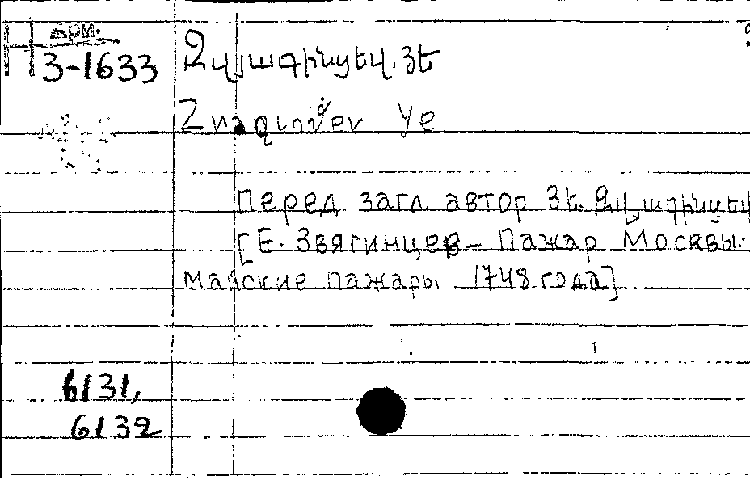 Н арм.
3-1633
Զվյագինցեվ. Յե
Zvyagincev Ye
Перед загл. автор Յե. Զվյագինցեվ
[Е. Звягинцев – Пажар Москвы.
Майские пажары 1748 года]
6131,
6132